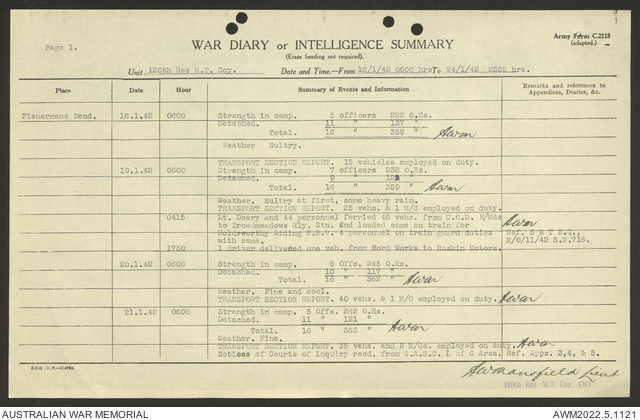 Page 1.
WAR DIARY or INTELLIGENCE SUMMARY
(Erase heading not required).
Army Form C.2118
(adapted.)
Unit 120th Res M.T. Coy. Date and Time.—From 18/1/42 0600 hrs To 24/1/42 2359 hrs.
Place Date Hour Summary of Events and Information Remarks and references to Appendices, Diaries, &c.
Fishermans Bend. 18.1.42 0600 Strength in camp. 5 officers 222 O.Rs.
Detached. 11 " 137 "
Total. 16 " 359 "
Weather Sultry.
TRANSPORT SECTION REPORT. 18 vehicles employed on duty.
19.1.42 0600 Strength in camp. 7 officers 238 O.Rs.
Detached. 9 "
Total. 16 " 359 "
Weather. Sultry at first, some heavy rain.
TRANSPORT SECTION REPORT. 25 vehs. & 1 M/C employed on duty.
0415 Lt. Deery and 44 personnel ferried 48 vehs. from C.O.D. B/Mds
to Broadmeadows Rly. Stn. and loaded same on train for
Holdsworthy Siding N.S.W. 4 personnel on train guard duties Ref. S & T H.Q.,
with same. M/O/11/42 S.M.716.
1730 1 driver delivered one veh. from Ford Works to Ruskin Motors.
20.1.42 0600 Strength in camp. 6 Offs. 245 O.Rs.
Detached. 10 " 117 "
Total. 16 " 362 "
Weather. Fine and cool.
TRANSPORT SECTION REPORT. 40 vehs, & 1 M/C employed on duty.
21.1.42 0600 Strength in camp. 5 Offs. 242 O.Rs.
Detached. 11 " 121 "
Total. 16 " 363 "
Weather. Fine.
TRANSPORT SECTION REPORT. 35 vehs. and 2 M/Cs. employed on duty.
Notices of Courts of Inquiry recd. from C.A.S.C. L of C Area. Ref. Apps. 3,4, & 5.
Mansfield Lieut
120th Res M.T. Coy (M)
AUSTRALIAN WAR MEMORIAL
AWM2022.5.1121